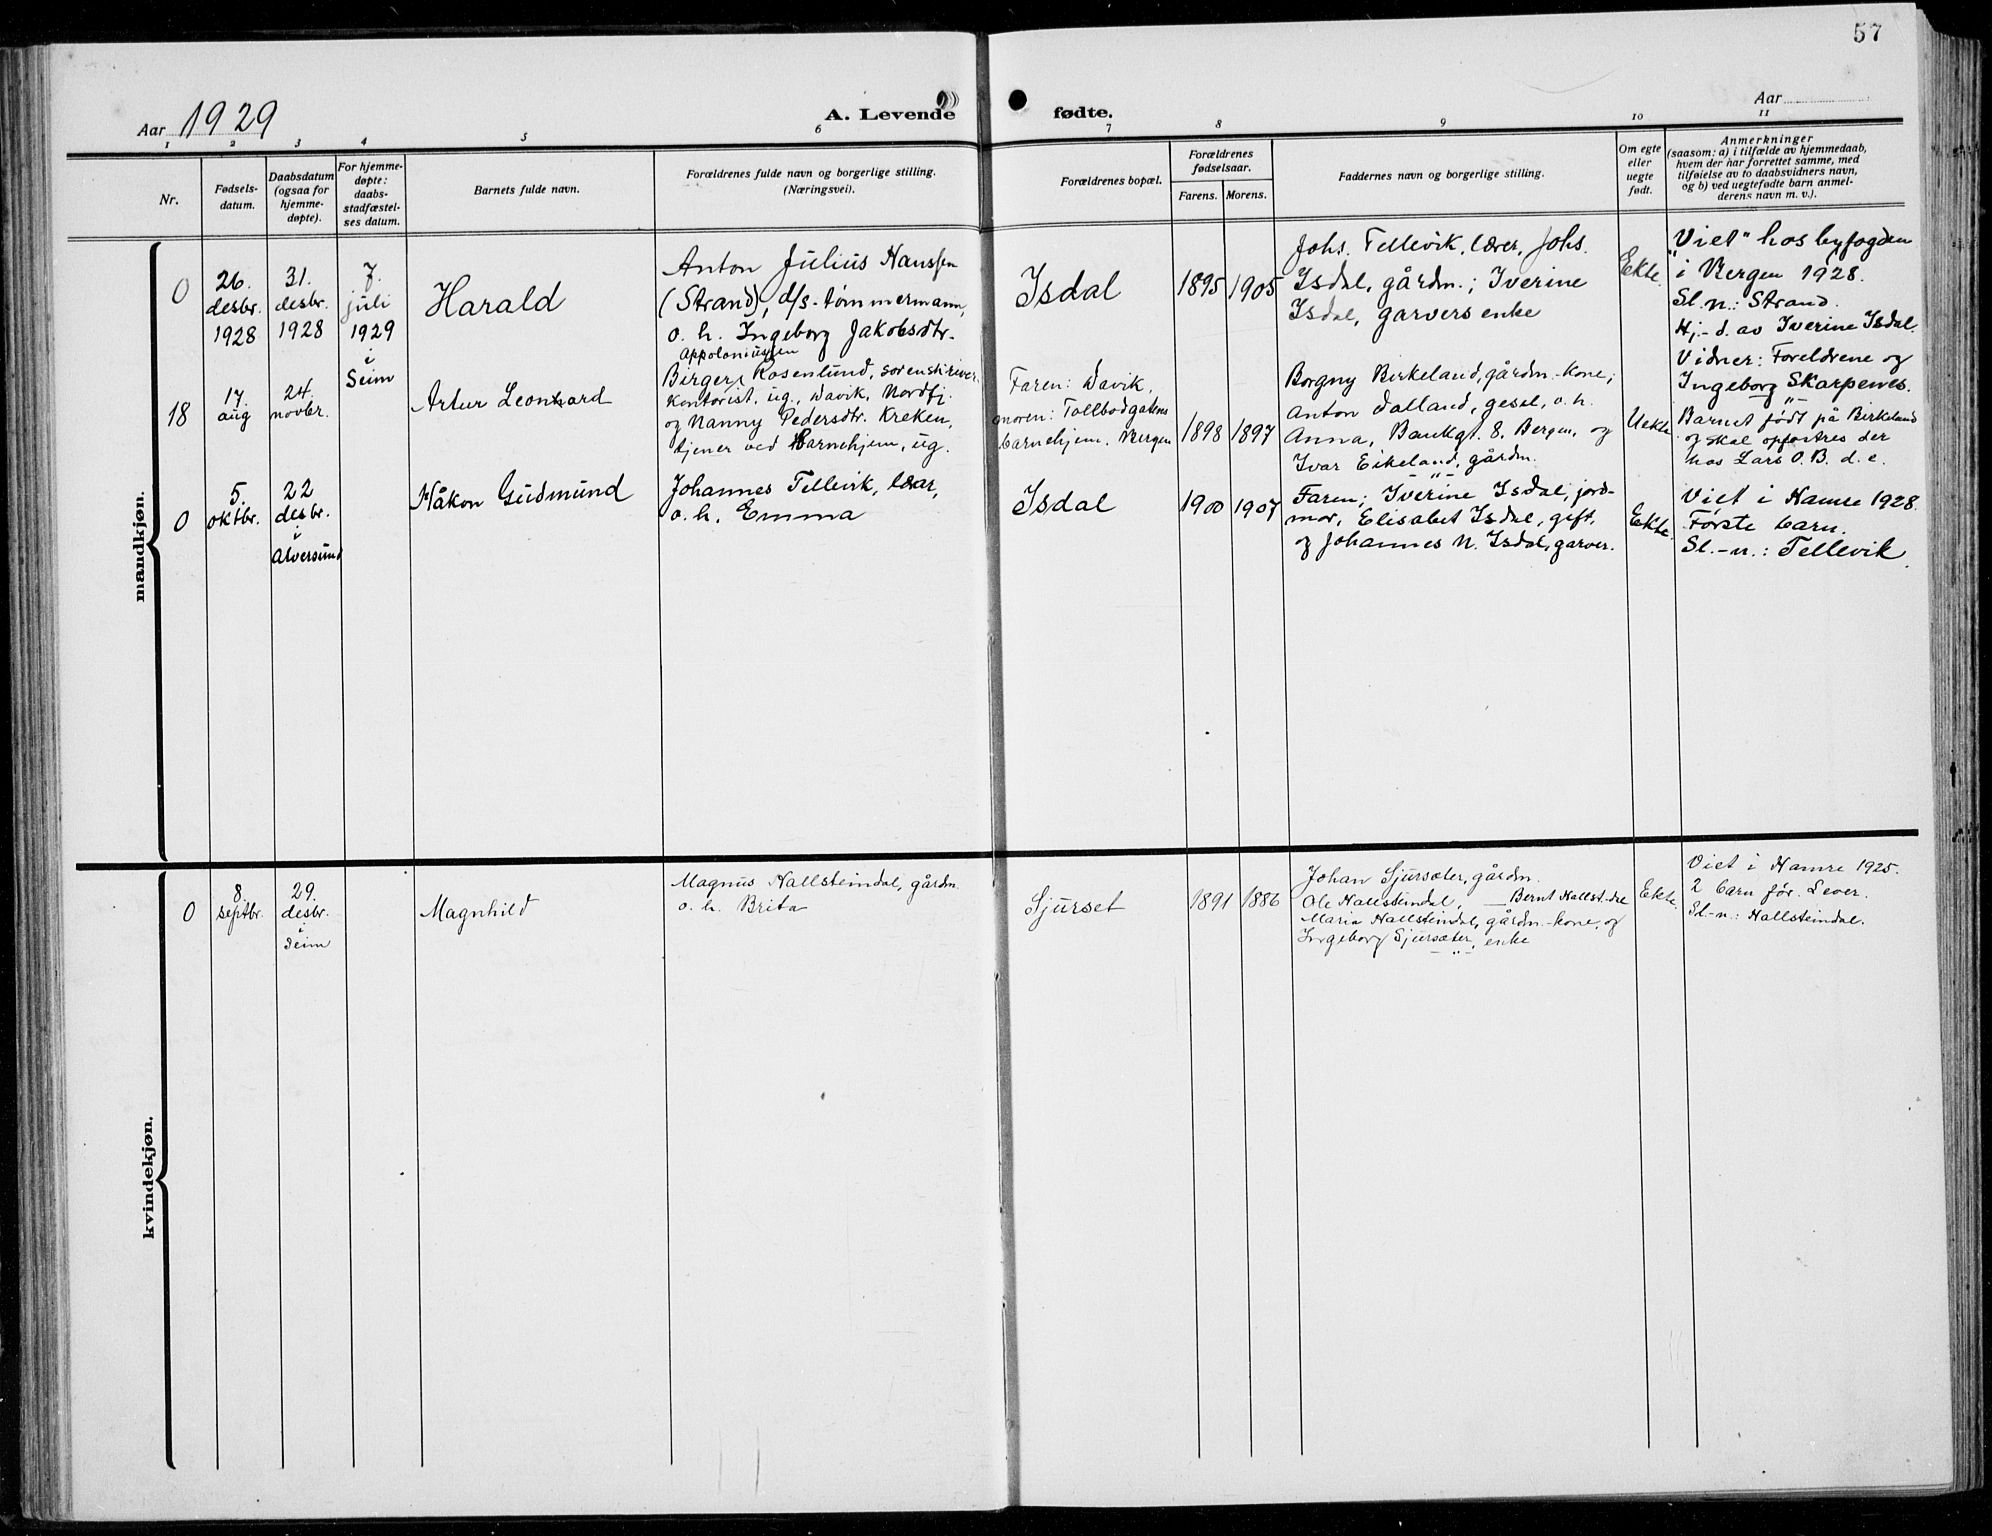 57
Aar 1929
A. Levende
fødte.
Aar
1
2
3
4
5
6
7
8
9
10
11
Nr.
Fødsels-
datum.
Daabsdatum
(ogsaa for
hjemme-
døpte).
For hjemme-
døpte:
daabs-
stadfæstel-
ses datum.
Barnets fulde navn.
Forældrenes fulde navn og borgerlige stilling.
(Næringsvei).
Forældrenes bopæl.
Forældrenes
fødselsaar.
Farens.
Morens.
Faddernes navn og borgerlige stilling.
Om egte
eller
uegte
født.
Anmerkninger
(saasom: a) i tilfælde av hjemmedaab,
hvem der har forrettet samme, med
tilføielse av to daabsvidners navn,
og b) ved uegtefødte barn anmel-
derens navn m. v.).
mandkjøn.
0
26.
desbr.
1928
31.
desbr.
1928
7.
juli
1929
i
Seim
Harald
Anton Julius Hanssen
(Strand), d/s-tømmermann,
o. h. Ingeborg Jakobsdtr.
Isdal
1895
1905
Johs. Tellevik, lærer, Johs.
Isdal, gårdm.; Iverine
Isdal, garvers enke
Ekte.
"Viet" hos byfogden
i Bergen 1928.
Sl.n.: Strand.
Hj.-d. av Iverine Isdal.
Vidner: Foreldrene og
Ingeborg Skarpenes.
18
17.
aug
24.
novbr.
Artur Leonhard
Appoloniussen
Birger Rosenlund, sorenskriver
kontorist, ug., Davik, Nordfj.
og Nanny Pedersdtr. Kreken,
tjener ved Barnehjem, ug.
Faren: Davik.
moren: Tollbodgatens
barnehjem. Bergen
1898
1897
Borgny Birkeland, gårdm.-kone;
Anton Dalland, gesel, o. h.
Anna, Bankgt. 8. Bergen, og
Ivar Eikeland, gårdm.
Uekte
Barnet født på Birkeland
og skal opfostres der
hos Lars O. B. d. e.
0
5.
oktbr.
22
desbr.
i
Alversund
Håkon Gudmund
Johannes Tellevik, lærar,
o. h. Emma
Isdal
1900
1907
Faren; Iverine Isdal, jord-
mor, Elisabet Isdal, gift,
og Johannes N. Isdal, garver.
Ekte.
Viet i Hamre 1928.
Første barn.
Sl.-n.: Tellevik
kvindekjøn.
0
8.
septbr.
29.
desbr.
i
Seim
Magnhild
Magnus Hallsteindal, gårdm.
o. h. Brita
Sjurset
1891
1886
Johan Sjursæter, gårdm.
Ole Hallsteindal, — Bernt Hallst.dal
Maria Hallsteindal, gårdm.-kone, og
Ingeborg Sjursæter, enke
Ekte.
Viet i Hamre 1925.
2 barn før. Lever.
Sl.-n.: Hallsteindal.